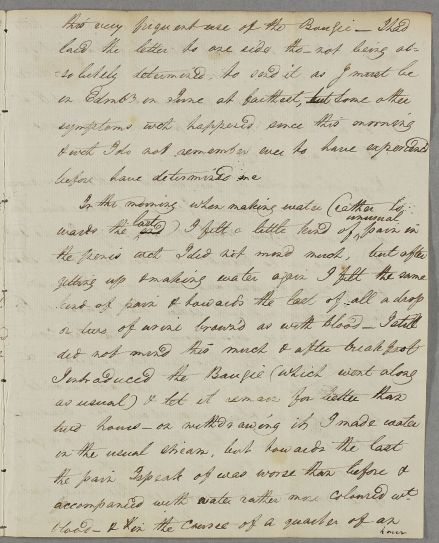 this very frequent use of the Bougie — I had
laid the letter to one side tho not being ab-
-solutely determined to send it as I must be
in Edinbr. in June at farthest, but some other
symptoms wch happened since this morning
& wch I do not remember ever to have experienced
before have determined me
In the morning when making water (rather to-
wards the last) I felt a little kind of unusual pain in
the penis wch I did not mind much, but after
getting up & making water again I felt the same
kind of pain & towards the last of all a drop
or two of urine brown'd as with blood — I still
did not mind this much & after breakfast
I introduced the Bougie (which went along
as usual) & let it remain for better than
two hours — on withdrawing it I made water
in the usual stream, but towards the last
the pain I speak of was worse than before &
accompanied with water rather more coloured wt.
blood — & in the course of a quarter of an
hour